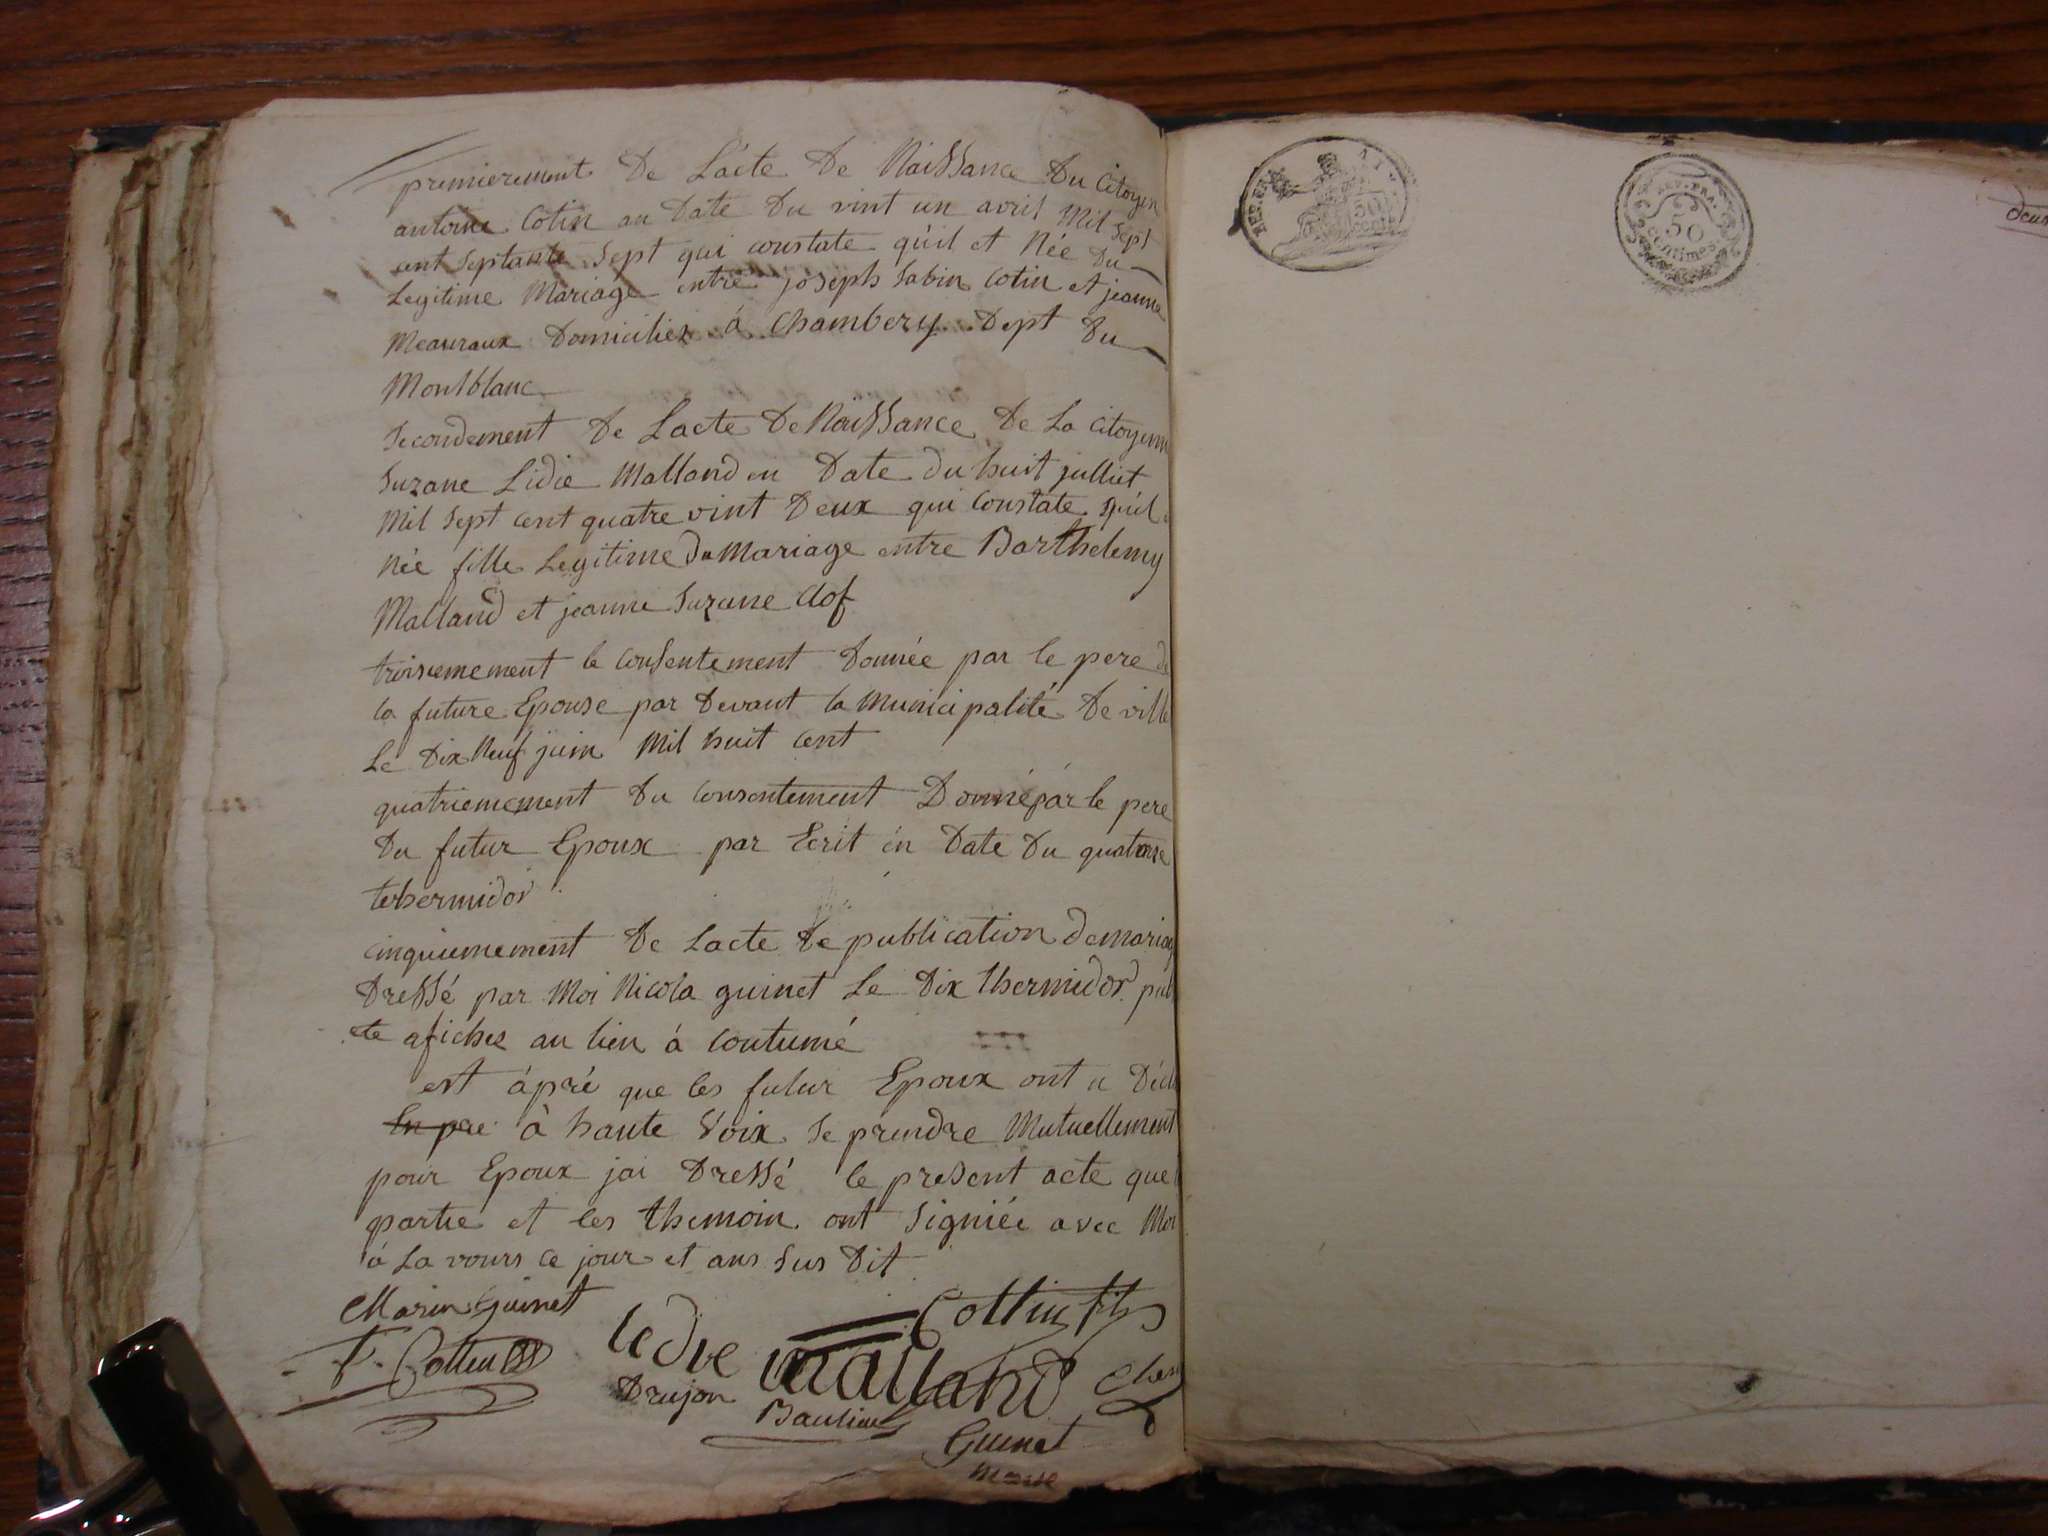 premierement De L'acte De Naissance Du Citoyen
antoine Cotin au Date Du vint un avril Mil Sept
cent septante Sept qui constate qu'il et Née Du
Legitime Mariage entre joseph Sabin Cotin et jeanne
Meauraux Domiciliez à Chambery Dept Du
Montblanc
Secondement De Lacte De Naissance De La Citoyenn
Suzane Lidie Malland en Date du huit julliet
Mil Sept cent quatre vint Deux qui Constate
Née fille Legitime Du Mariage entre Barthelemy
Malland et jeanne Suzane Clof
troisiemement le consentement Donnée par le pere de
la future Epouse par Devant la Municipalité De ville
Le Dix Neuf juin Mil huit cent
quatriemement Du Consentement Donné par le pere
Du futur Epoux par Ecrit en Date Du quatorse
terhermidor
cinquiemement De Lacte De publication De mariag
Dressé par Moi Nicola guinet Le Dix thermidor pub
ete afiches au lieu à Coutumé
est àpré que les futur Epoux ont u Décl
à haute Voix Se prendre Mutuellement
pour Epoux jai Dressé le present acte que
partie et les themoin ont Signiée avec Moi
à La vours ce jour et ans Sus Dit
Marin Guinet Cottin fils
F. Cotten ledre malland
Drujon
Guinet
Maire
REP. FRA. 50 cent REP. FRA. 50 centimes